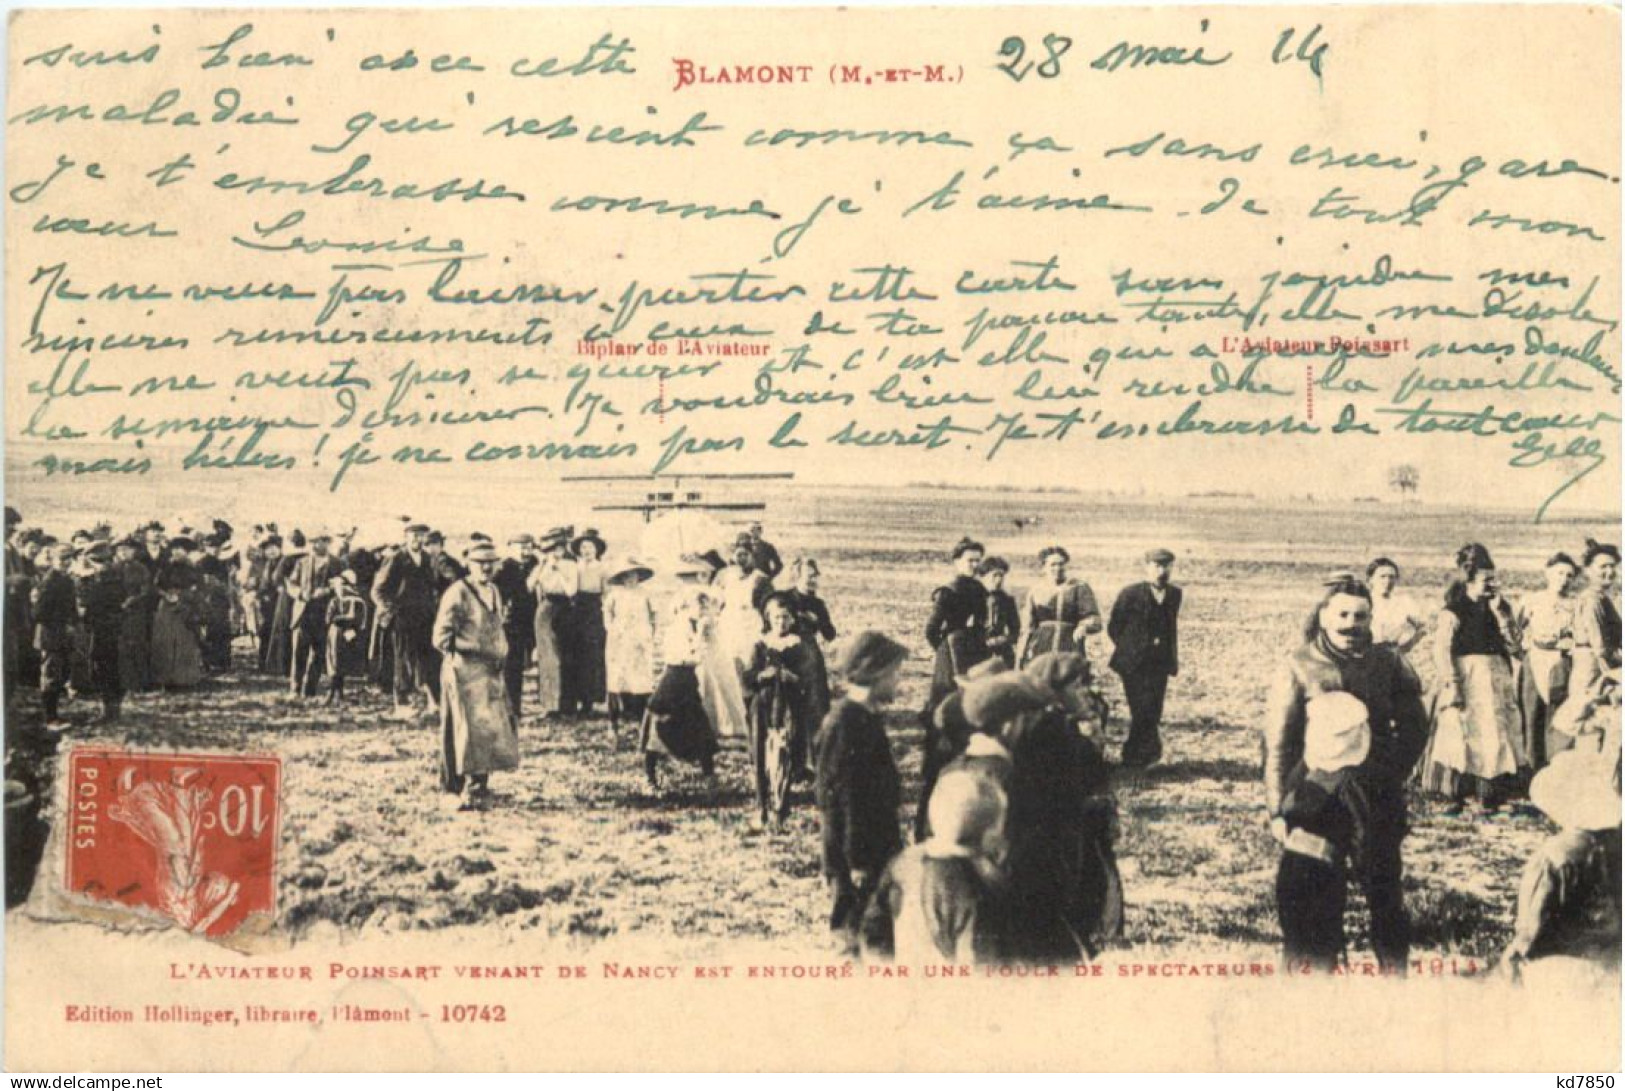 28 mai 14
BLAMONT (M.-ET-M.)
suis bien avec cette
maladie qui revient comme ça sans crier, gare.
Je t'embrasse comme je t'aime de tout mon
cœur Louise
Je ne veux pas laisser partir cette carte sans joindre mes
sincères remerciements à ceux de ta pauvre tante, elle me désole,
Biplan de l'Aviateur
L'Aviateur Poinsart
elle ne veut pas se guérir et c'est elle qui a mes douleurs
la semaine dernière. Je voudrais bien lui rendre la pareille
mais hélas! je ne connais pas le secret. Je t'embrasse de tout cœur
10c
POSTES
L'AVIATEUR POINSART VENANT DE NANCY EST ENTOURÉ PAR UNE FOULE DE SPECTATEURS (2 AVRIL 1911)
Edition Hollinger, libraire, Blâmont - 10742
kd7850